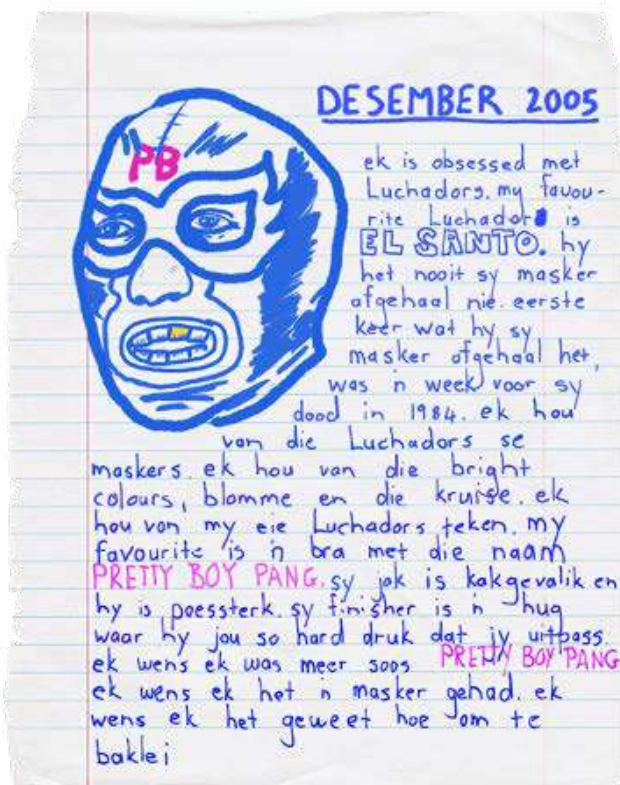 DESEMBER 2005
PB
ek is obsessed met
Luchadors. my favou-
rite Luchador is
EL SANTO. hy
het nooit sy masker
afgehaal nie. eerste
keer wat hy sy
masker afgehaal het,
was 'n week voor sy
dood in 1984. ek hou
van die Luchadors se
maskers. ek hou van die bright
colours, blomme en die kruise. ek
hou van my eie Luchadors teken. my
favourite is 'n bra met die naam
PRETTY BOY PANG. sy jok is kakgevalik en
hy is poessterk. sy finisher is 'n hug
waar hy jou so hard druk dat jy uitpass.
ek wens ek was meer soos PRETTY BOY PANG
ek wens ek het 'n masker gehad. ek
wens ek het geweet hoe om te
baklei